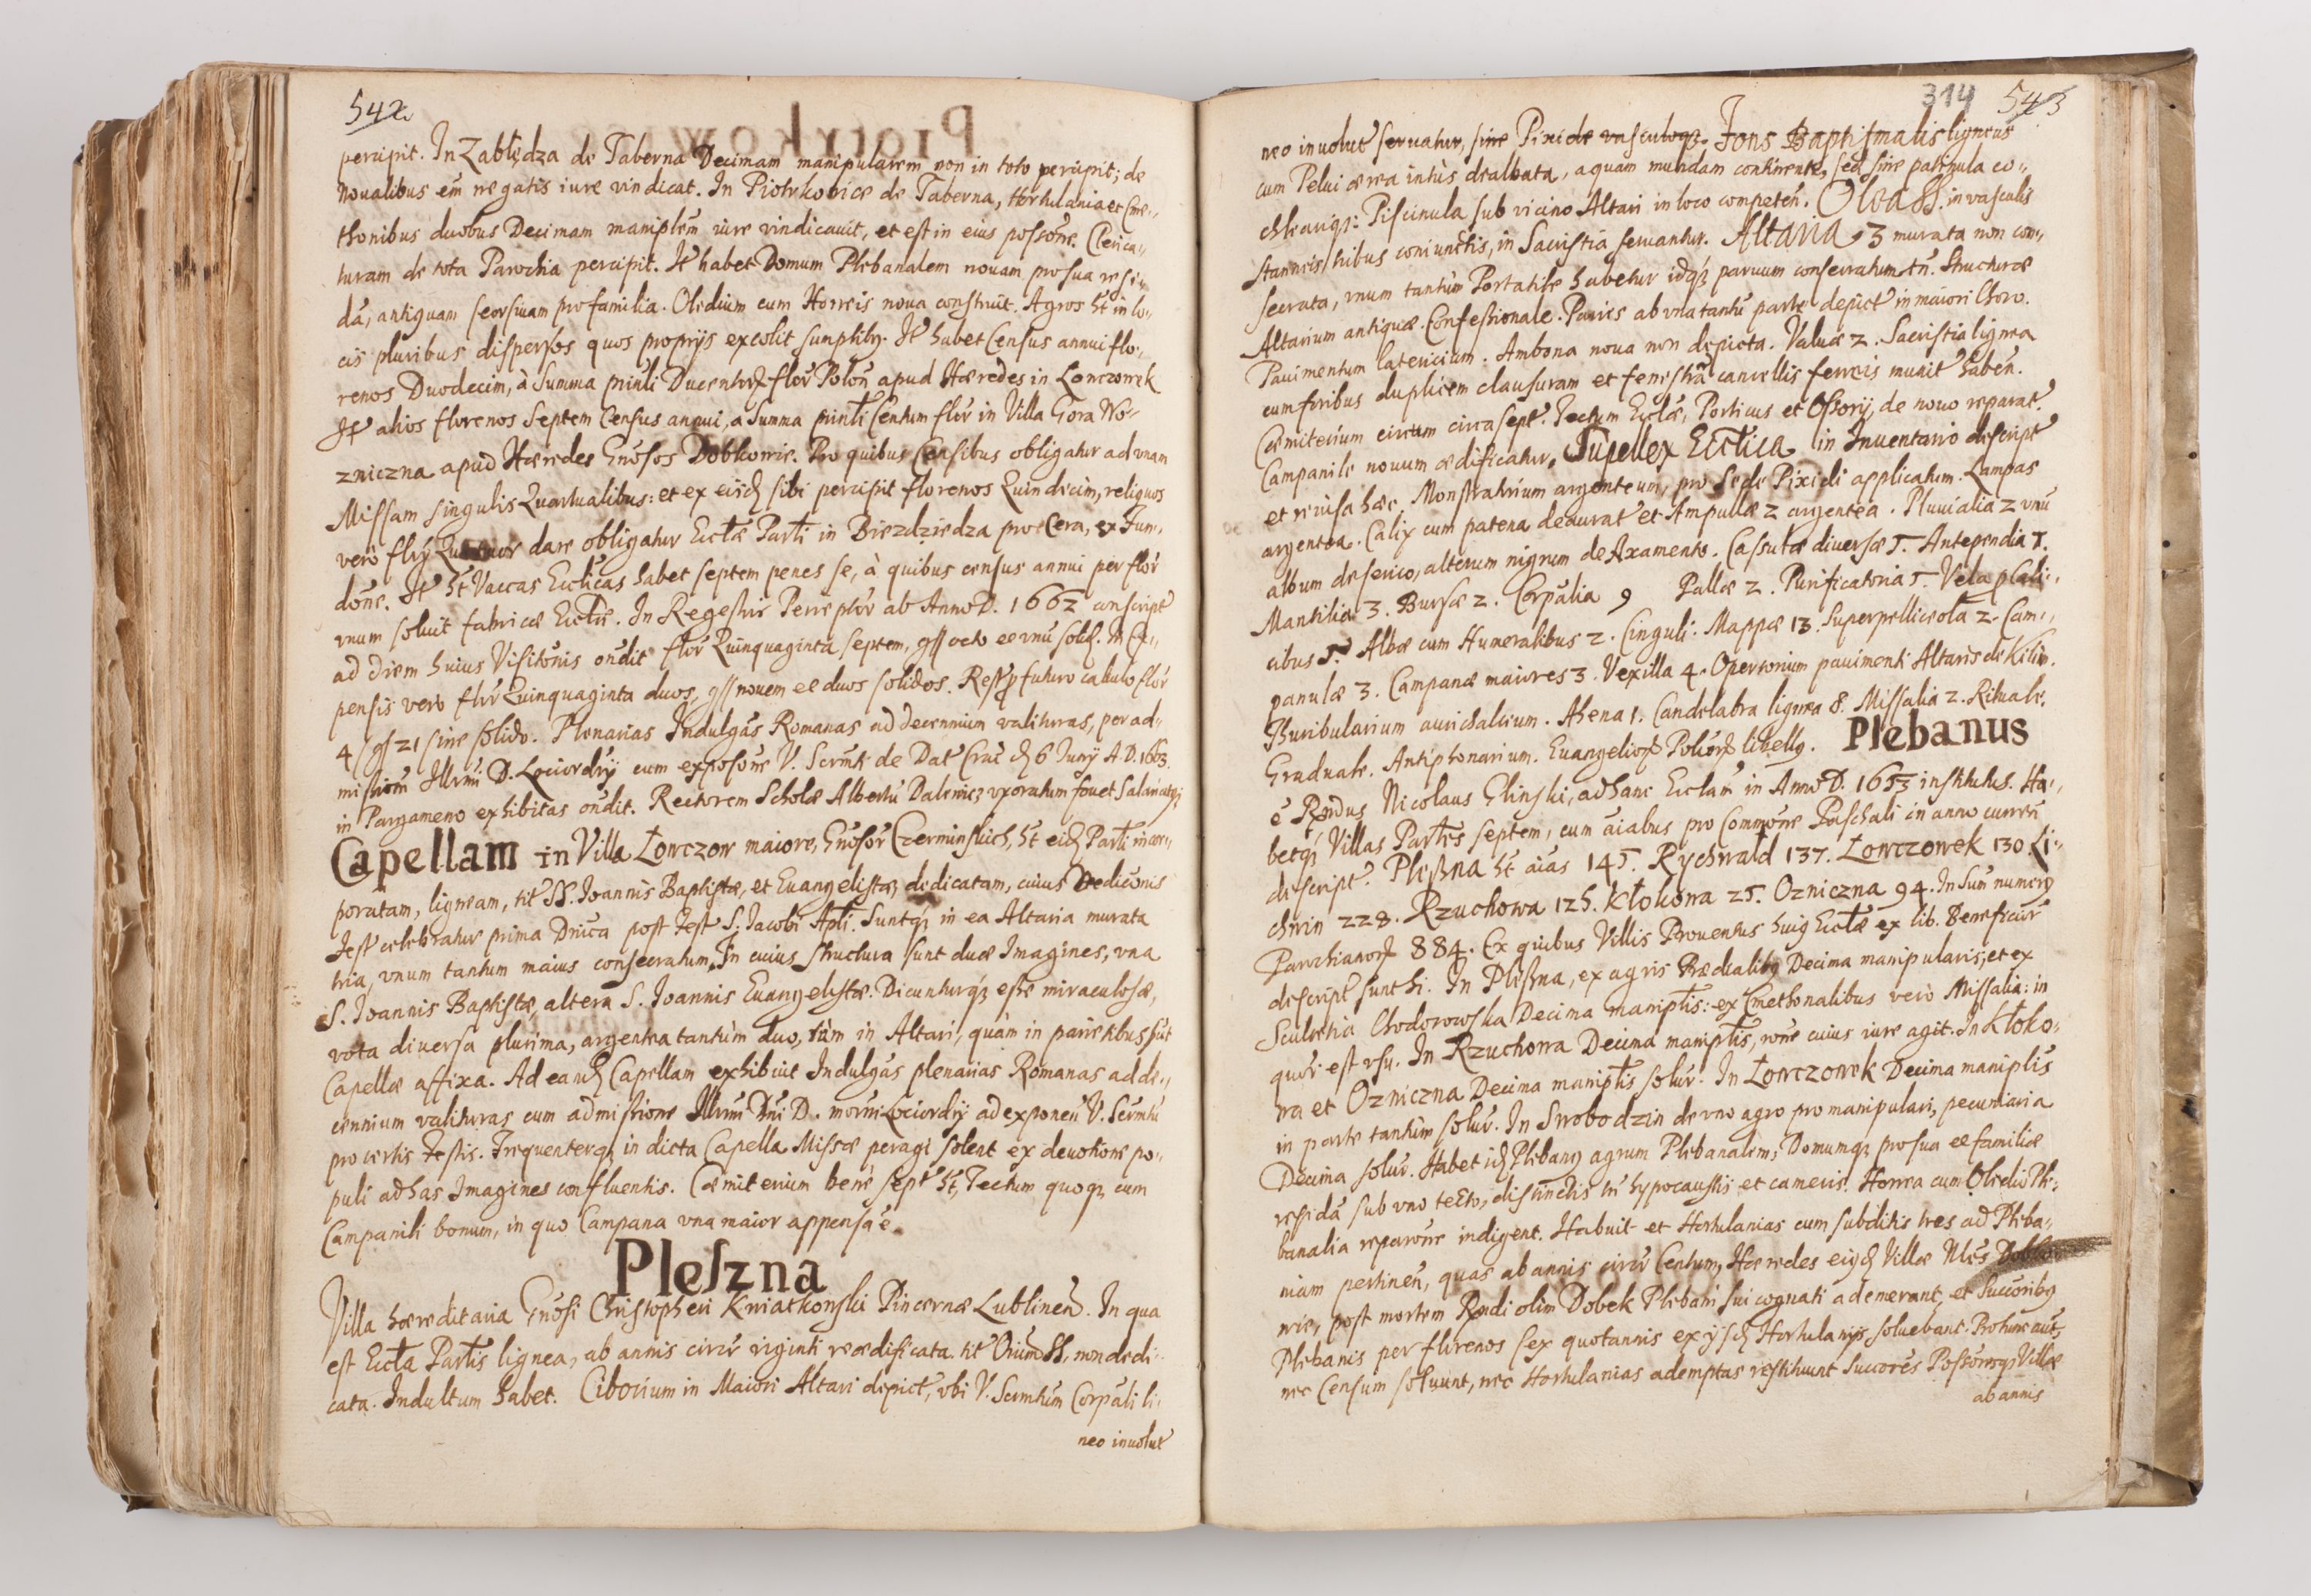 542.
percipit. In Zabłędza de Taberna Decimam manipularem non in toto percipit; de
Noualibus em̄ negatis iure vindicat. In Piotrkovice de Taberna, Hortulania et Cme-
thonibus duobus Decimam manipłem iure vindicauit, et est in eius possōne. Clerica-
turam de tota Parochia percipit. It habet Domum Plebanalem nouam pro sua resi-
dā, antiquam seorsiuam pro familia. Oledium cum Horreis noua construit. Agros ht in lo-
cis pluribus dispersos quos proprijs excolit sumptibq. It habet Census annui flo-
renos Duodecim, à Summa prinli Ducentorꝝ flor Polon apud Hæredes in Lonczowek
It alios florenos Septem Census annui, a Summa prinli Centum flor in Villa Gora Wo-
zniczna apud Hæredes Gnōsos Dobkowic. Pro quibus Censibus obligatur ad vnam
Missam singulis Quartualibus: et ex eisd sibi percipit florenos Quindecim, reliquos
verò flrij Quatuor dare obligatur Ecclæ Parli in Biezdziedza pro Cera, ex Fun-
dōne. It ht Vaccas Ecclicas habet septem penes se, à quibus census annui per flor
vnum soluit fabricæ Ecclæ. In Regestris Perceptor ab Anno D. 1662 conscript
ad diem huius Visitōnis ondit flor Quinquaginta septem, gss octo et vnū solid. In Ex-
pensis vero flor Quinquaginta duos, gss nouem et duos solidos. Rest ꝓ futuro calculo flor
4 gss 21 sine solido. Plenarias Indulgās Romanas ad decennium valituras, per ad-
missiōn Illrmi D. Lociordrij cum exposōne V. Scrmti de Dat Crac d 6 Junij A.D. 1663.
in Pargameno exhibitas ondit. Rectorem Scholæ Albertū Dalewicz vxoratum fouet Salariatqz
Capellam in Villa Łonczow maiore, Gnōsor Czerminskich, ht eid Parli incor-
poratam, ligneam, tit SS. Joannis Baptistæ, et Euangelistæqz dedicatam, cuius Dedicōnis
Fest celebratur prima Dnica post Fest S. Jacobi Apli. Suntqz in ea Altaria murata
tria, vnum tantum maius consecratum. In cuius structura sunt duæ Imagines, vna
S. Joannis Baptistæ, altera S. Joannis Euangelistæ. Dicunturqz esse miraculosæ,
vota diuersa plurima, argentea tantùm duo, tùm in Altari, quàm in parietibus sūt
Capellæ affixa. Ad eand Capellam exhibuit Indulgās plenarias Romanas ad de-
cennium valituras cum admissione Illrmi Dni D. moder Lociordrij ad exponen V. Scrmtū
pro certis Festis. Frequenterqz in dicta Capella Missæ peragi solent ex deuotione po-
puli ad has Imagines confluentis. Cæmiterium benè sept ht, Tectum quoqz cum
Campanili bonum, in quo Campana vna maior appensa ē.
Plefzna
Villa hæreditaria Gnōsi Christopheri Kwiatkowski Pincernæ Lublinen. In qua
est Eccla Parlis lignea, ab annis circr viginti reædificata tit Oīum SS, non dedi-
cata. Indultum habet. Ciborium in Maiori Altari depict, vbi V. Scrmtum Corpāli li-
neo inuolut
314 543
neo inuolut seruatur, sine Pixide vasculoqz. Fons Baptismalis ligneus
cum Pelui ærea intùs dealbata, aquam mundam continente, sed sine patinula co-
chleariqz: Piscinula sub vicino Altari in loco competen. Olea SS. in vasculis
stanneis tribus coniunctis, in Sacristia seruantur. Altaria 3 murata non con-
secrata, vnum tantùm Portatile habetur idqz paruum consecratum tn. Structuræ
Altarium antiquæ. Confessionale. Paries ab vna tantū parte depict in maiori Choro.
Pauimentum latericium. Ambona noua non depicta. Valuæ 2. Sacristia lignea
cum foribus duplicem clausuram et fenestrā cancellis ferreis munit haben.
Cæmiterium circum circa sept. Tectum Ecclæ, Porticus et Ossorij, de nouo reparat.
Campanile nouum ædificatur. Supellex Ecclica in Inuentario descript
et reuisa hæc. Monstratrium argenteum, pro Sede Pixidi applicatum. Lampas
argentea. Calix cum patena deaurat et Ampullæ 2 argentea. Pluuialia 2 vnū
album de serico, alterum nigrum de Axamento. Cassulæ diuersæ 5. Antependia 5.
Mantilia 3. Bursæ 2. Corpālia 9 Pallæ 2. Purificatoria 5. Vela ꝓ Cali-
cibus 5. Albæ cum Humeralibus 2. Cinguli: Mappæ 13. Superpelliceola 2. Cam-
panulæ 3. Campanæ maiores 3. Vexilla 4. Opertorium pauimenti Altaris de Kilim.
Thuribularium aurichalcium. Ahena 1. Candelabra lignea 8. Missalia 2. Rituale.
Graduale. Antiphonarium. Euangeliorꝝ Polōrꝝ libellq. Plebanus
ē Rndus Nicolaus Glinski, ad hanc Ecclam in Anno D. 1653 institutus. Ha-
betqz Villas Parles septem, cum aīabus pro Commōne Paschali in anno curren
descript. Pleszna ht aīas 145. Rychwałd 137. Łonczowek 130. Li-
chwin 228. Rzuchowa 125. Kłokowa 25. Ozniczna 94. In Sum̄ numerq
Parochianorꝝ 884. Ex quibus Villis Prouentus huiq Ecclæ ex lib. Beneficior
descript sunt hi. In Pleszna, ex agris Prædialibq Decima manipularis; et ex
Scultetia Chodorowska Decima maniplis: ex Cmethonalibus verò Missalia: in
quor est vsu. In Rzuchowa Decima maniplis, rōne cuius iure agit. In Kłoko-
wa et Ozniczna Decima maniplis solur. In Łonczowek Decima maniplis
in parte tantùm solur. In Swobodzin de vno agro pro manipulari, pecuniaria
Decima solur. Habet id Plebanq agrum Plebanalem, Domumqz pro sua et familiæ
residā sub vno tecto, distinctis tn hypocaustis et cameris. Horrea cum Oledio Ple-
banalia reparōne indigent. Habuit et Hortulanias cum subditis tres ad Pleba-
niam pertinen, quas ab annis circr Centum, Hæredes eiqd Villæ Nles Dobko-
wic, post mortem Rndi olim Dobek Plebani sui cognati ademerant, et Succōribq
Plebanis per florenos sex quotannis ex ijsd Hortulanijs soluebant. Pro tunc aut,
nec Censum soluunt, nec Hortulanias ademptas restituunt Succōres Possōresqz Villæ
ab annis